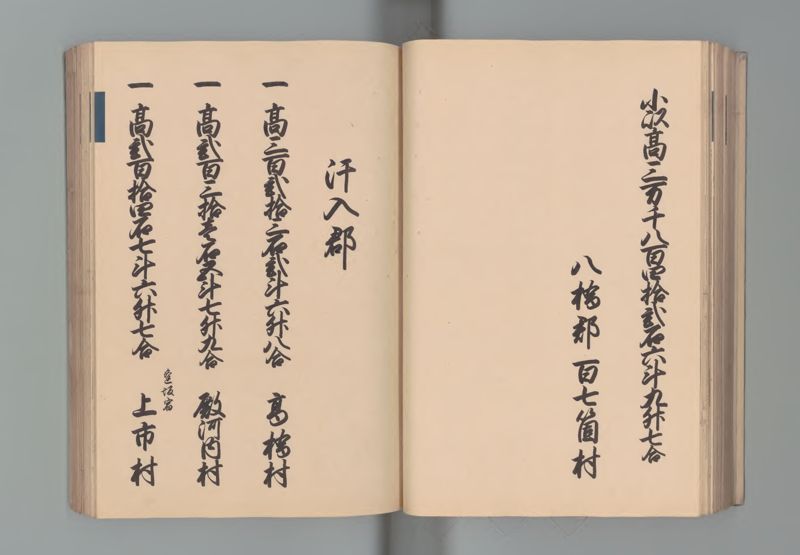 小以高三万千八百四拾弐石六斗九升七合
八橋郡百七箇村
汗入郡
一高三百弐拾三石弐斗六升八合 高橋村
一高弐百三拾壱石五斗七升九合 殿河内村
坂宿
一高弐百拾四石七斗六升七合 上市村